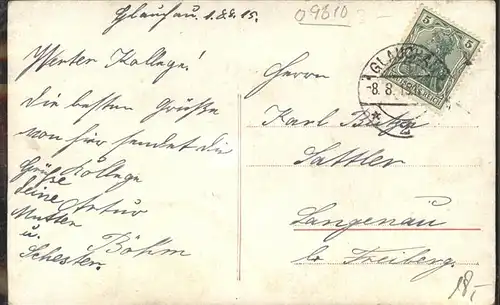 Glauchau. 1.8.8.15.
09610
Werter Kollege!
Die besten Grüße
von hier sendet die
Kollege
Artur
Böhm
Grüße
deine
Mutter
u.
Schester.
5
5
GLAUCHAU
-8.8.
Herrn
Karl
Sattler
Langenau
b/ Freiberg.
18,-